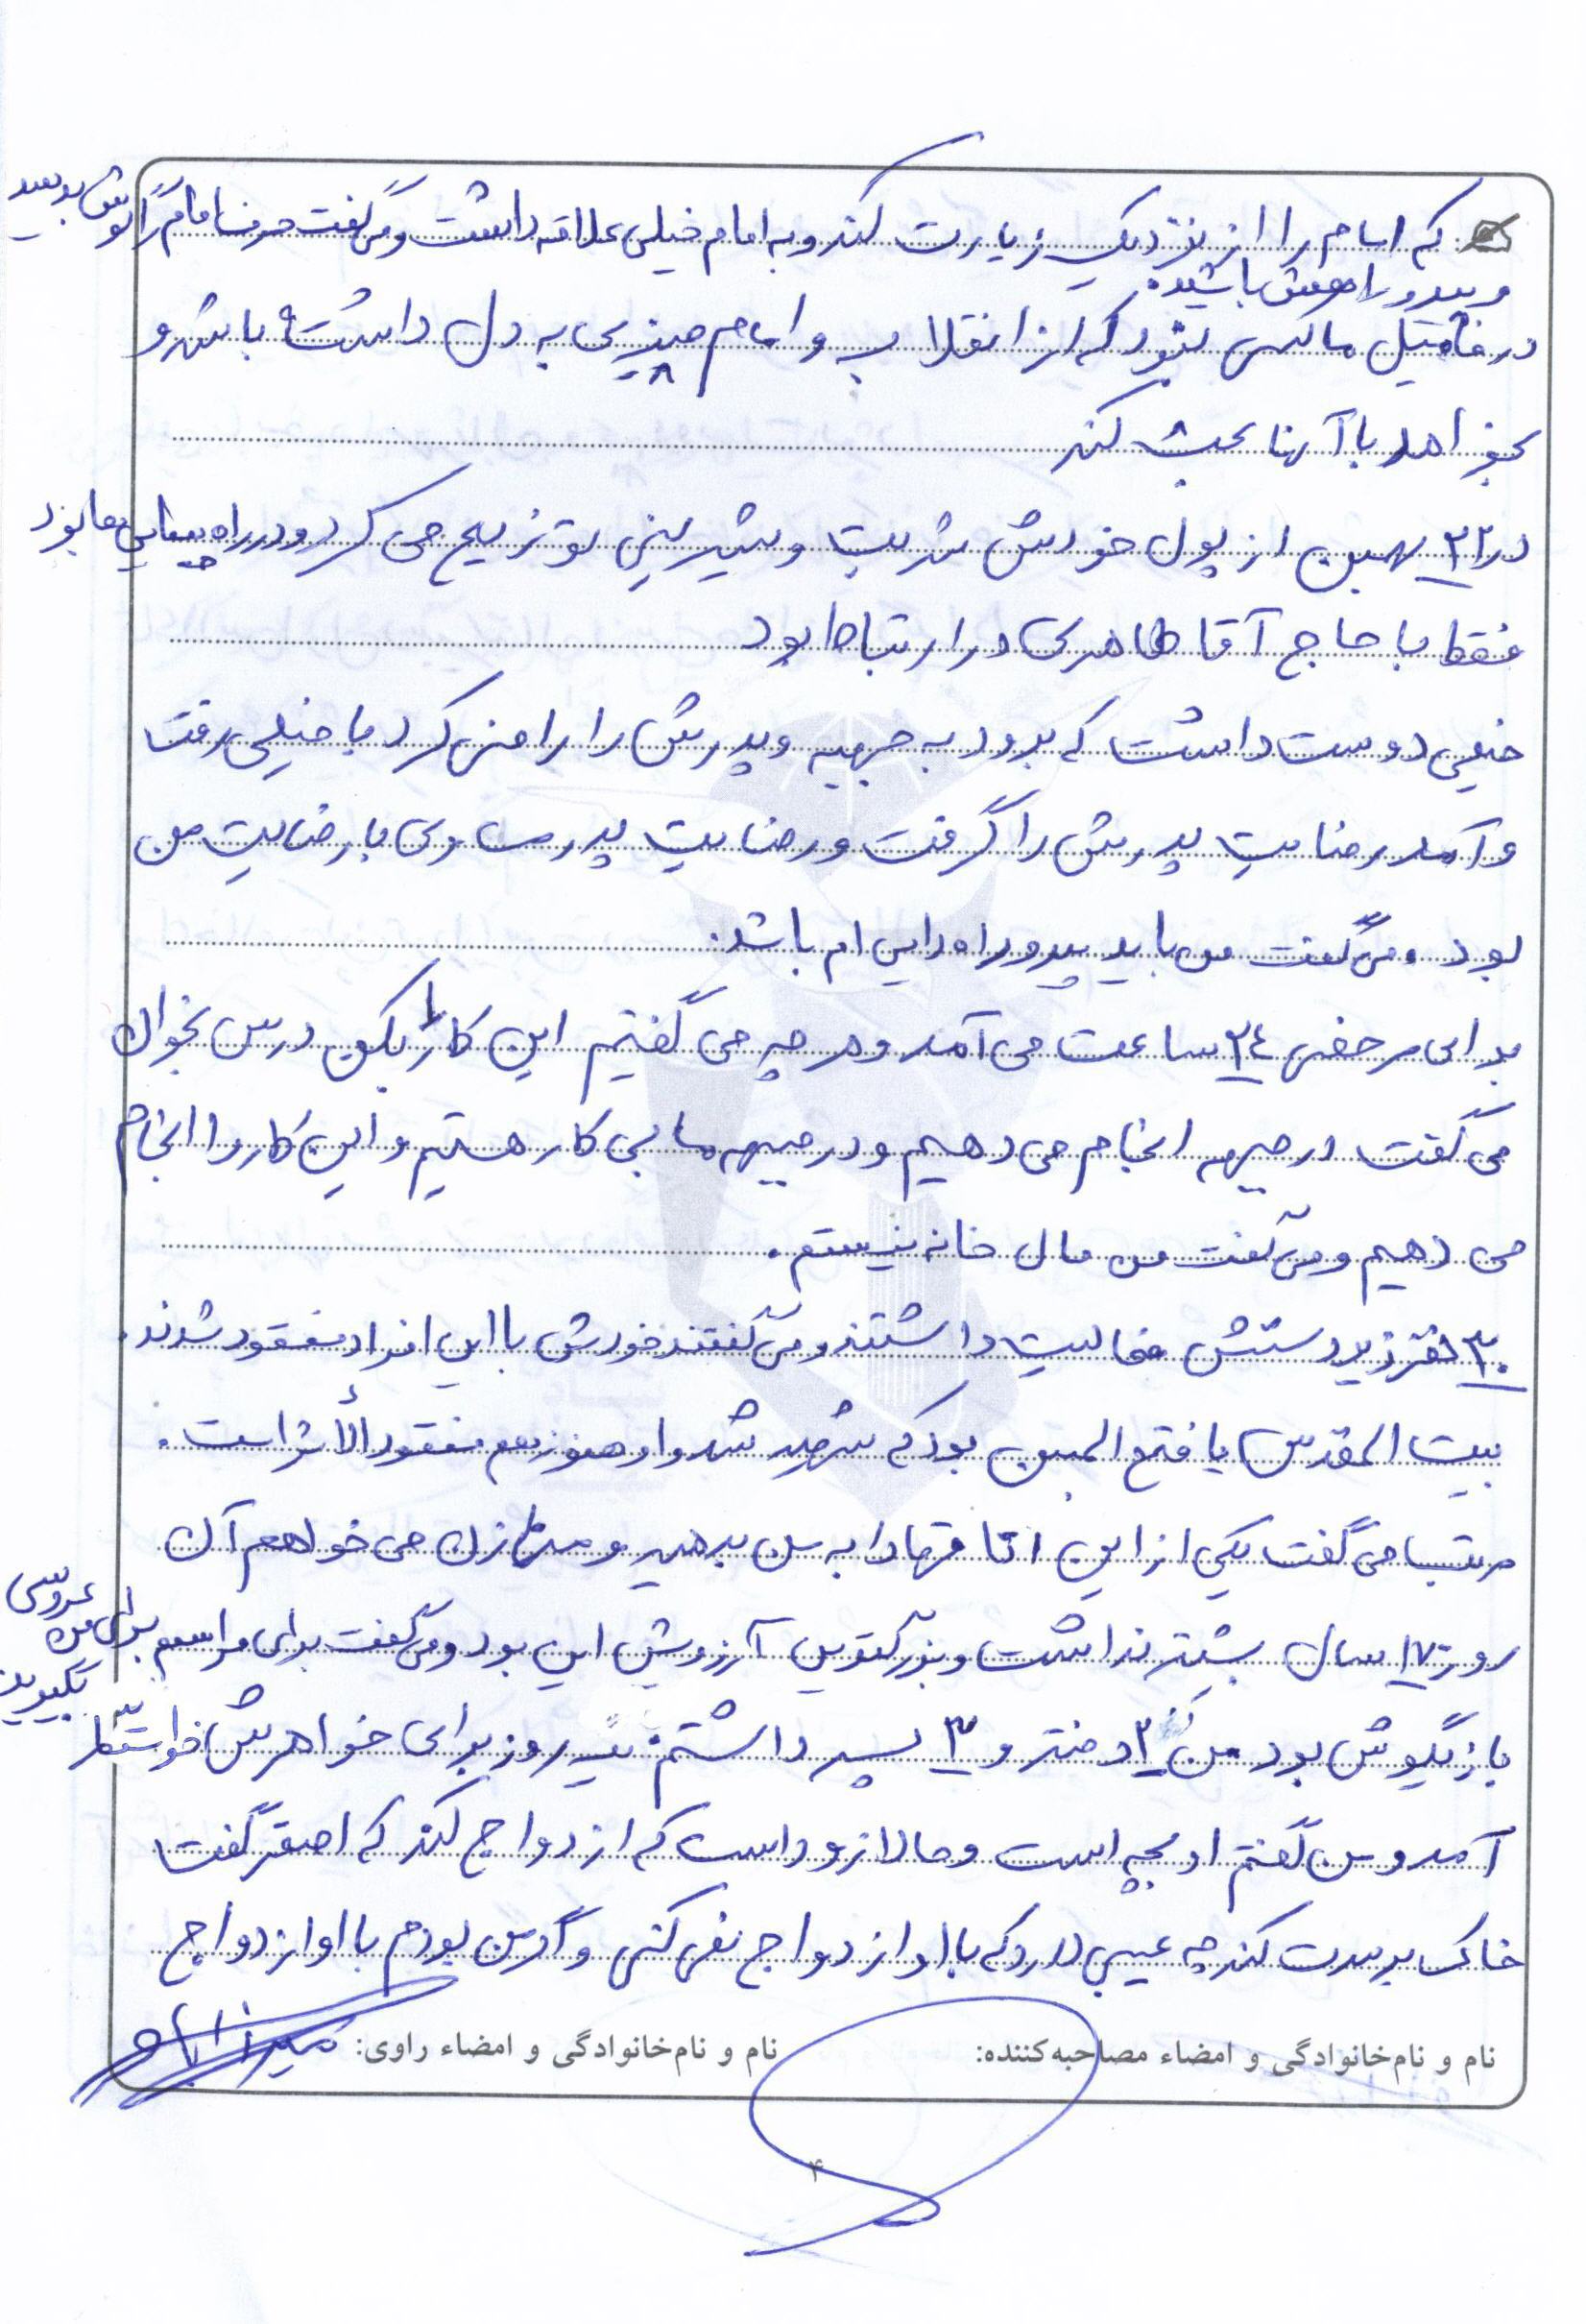 که امام را از نزدیک زیارت کند و به امام خیلی علاقه داشت و می گفت حرف امام را گوش بدهید
و پیرو راهش باشید.
در فامیل ما کسی نبود که از انقلاب و امام چیزی به دل داشته باشد و
بخواهد با آنها بحث کند
در ۲۲ بهمن از پول خودش شربت و شیرینی توزیع می کرد و در راه پیمایی ها بود
فقط با حاج آقا طاهری در ارتباط بود
خیلی دوست داشت که برود به جبهه و پدرش را راضی کرد با خیلی رفت
و آمد رضایت پدرش را گرفت و رضایت پدرش مساوی با رضایت من
بود و می گفت من باید پیرو راه رایی ام باشد.
برای مرخصی ۲۴ ساعت می آمد و هر چه می گفتیم این کار را بکن درس بخوان
می گفت در جبهه انجام می دهیم و در جبهه ما بی کار هستیم و این کار را انجام
می دهیم و می گفت من مال خانه نیستم.
۳۰ نفر زیر دستش فعالیت داشتند و می گفتند خودش با این افراد مفقود شدند.
بیت المقدس یا فتح المبین بود که شهید شد و او هنوز هم مفقود الأثر است.
مرتب می گفت یکی از این اتاقها را به من بدهید و من زن می خواهم آن
روز ۱۷ سال بیشتر نداشت و بزرگترین آرزویش این بود و می گفت برای مراسم برای من عروسی بگیرید
بازیگوش بود من ۳ دختر و ۳ پسر داشتم. یک روز برای خواهرش خواستگار
آمد و من گفتم او بچه است و حالا زود است که ازدواج کند که اصغر گفت
خاک بر سرت کند چه عیبی دارد که با او ازدواج نمی کنی و اگر من بودم با او ازدواج
نام و نام خانوادگی و امضاء مصاحبه کننده:
نام و نام خانوادگی و امضاء راوی:
۴